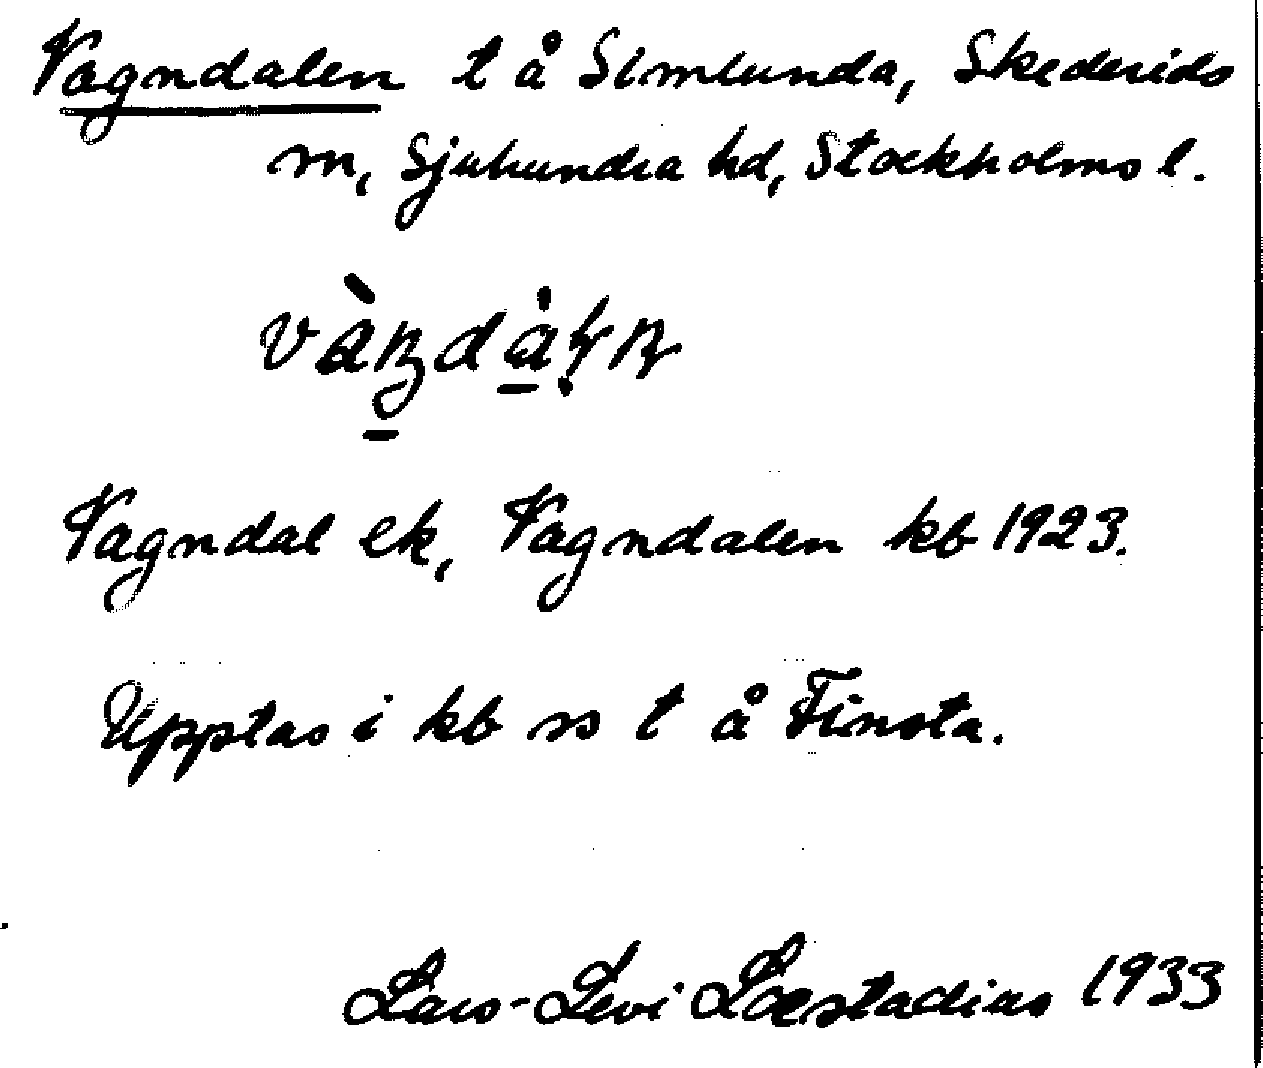 Vagndalen t å Simlunda, Skederids
m, Sjuhundra hd, Stockholms l.
Vagndal ek, Vagndalen kb 1923.
Upptas i kb ss t å Finsta.
Lars-Levi Læstadius 1933